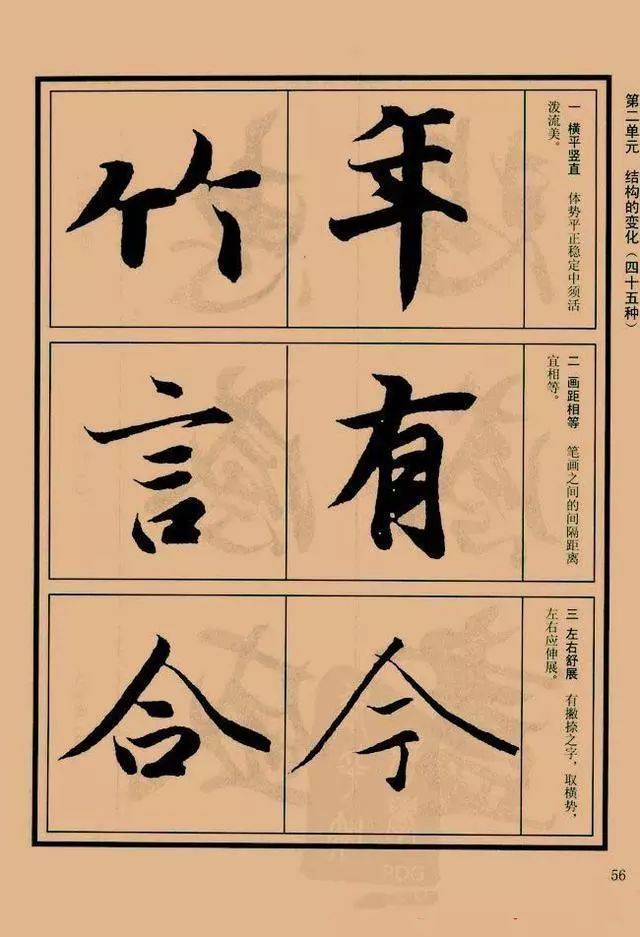 第二单元 结构的变化（四十五种）
一 横平竖直 体势平正稳定中须活
泼流美。
年
竹
二 画距相等 笔画之间的间隔距离
宜相等。
有
言
三 左右舒展 有撇捺之字，取横势，
左右应伸展。
今
合
56